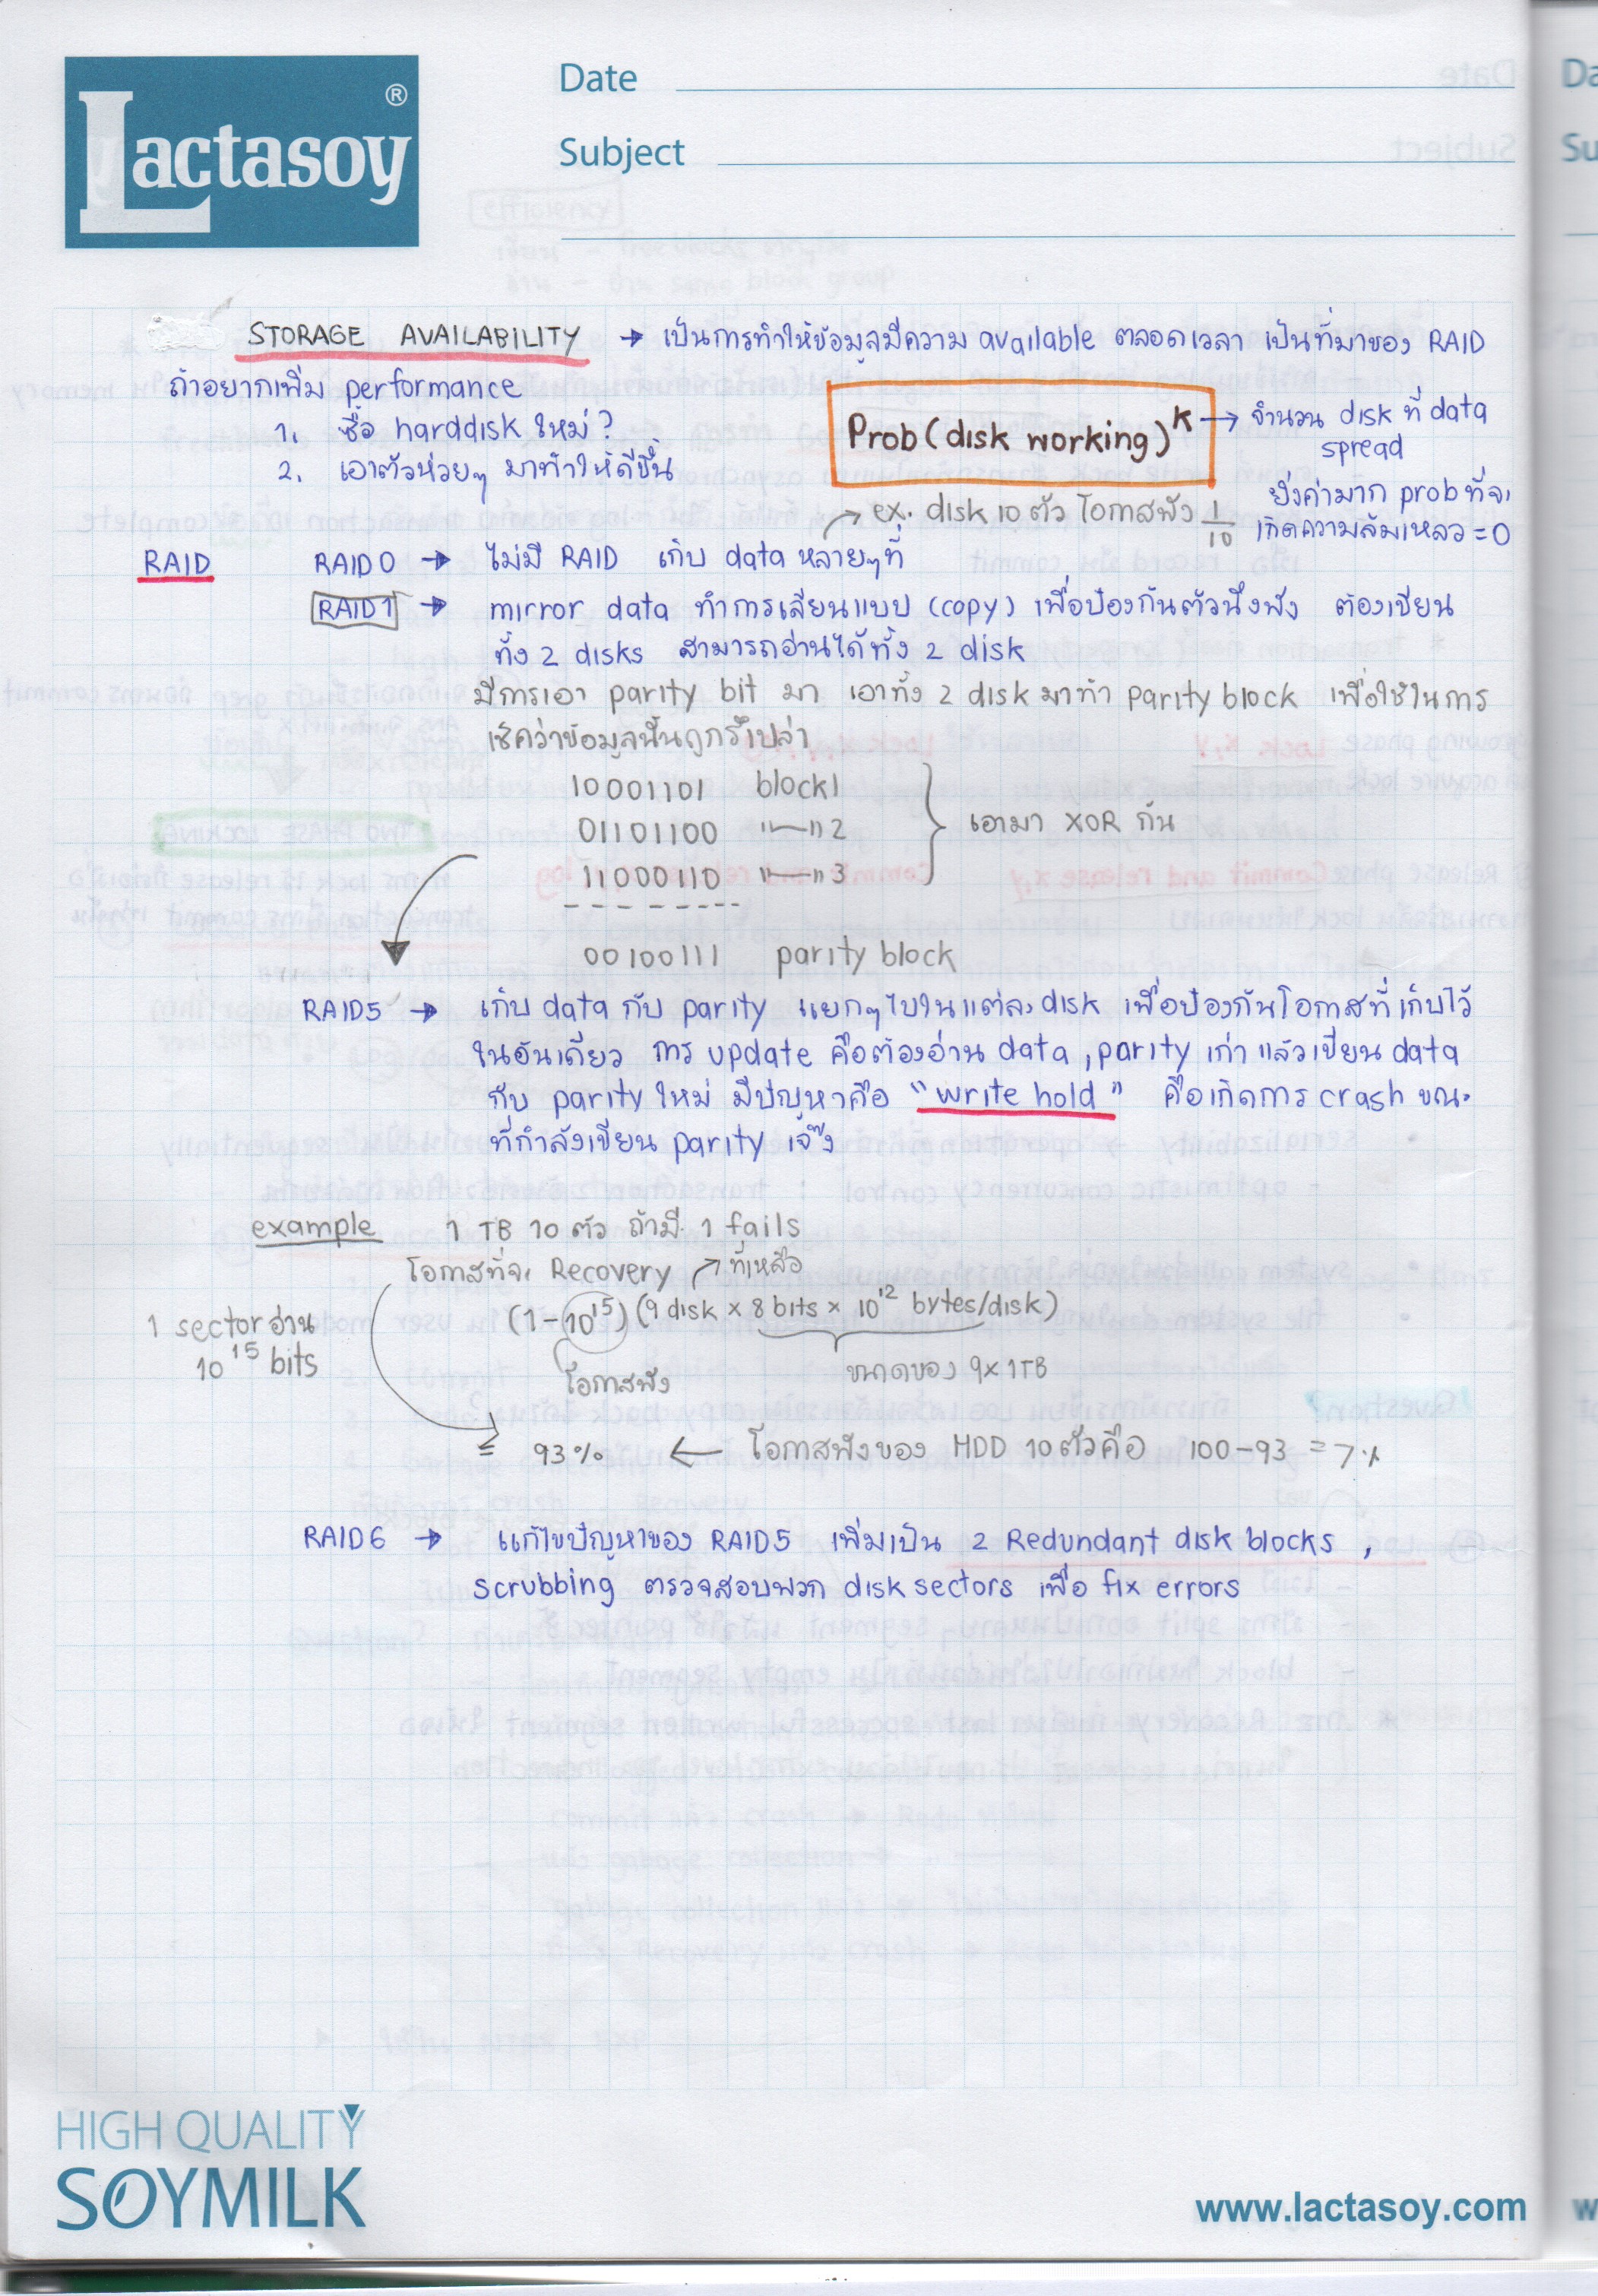 Lactasoy ®
Date
Subject
STORAGE AVAILABILITY → เป็นการทำให้ข้อมูลมีความ available ตลอดเวลา เป็นที่มาของ RAID
ถ้าอยากเพิ่ม performance
1. ซื้อ harddisk ใหม่?
2. เอาตัวห่วยๆ มาทำให้ดีขึ้น
Prob (disk working)^K → จำนวน disk ที่ data
spread
ยิ่งค่ามาก prob ที่จะ
เกิดความล้มเหลว = 0
ex. disk 10 ตัว โอกาสพัง 1/10
RAID RAID0 → ไม่มี RAID เก็บ data หลายๆที่
RAID1 → mirror data ทำการเลียนแบบ (copy) เพื่อป้องกันตัวนึงพัง ต้องเขียน
ทั้ง 2 disks สามารถอ่านได้ทั้ง 2 disk
มีการเอา parity bit มา เอาทั้ง 2 disk มาทำ parity block เพื่อใช้ในการ
เช็คว่าข้อมูลนั้นถูกรึเปล่า
10001101 block1
01101100 "—" 2 เอามา XOR กัน
11000110 "—" 3
00100111 parity block
RAID5 → เก็บ data กับ parity แยกๆไปในแต่ละ disk เพื่อป้องกันโอกาสที่เก็บไว้
ในอันเดียว การ update คือต้องอ่าน data, parity เก่า แล้วเขียน data
กับ parity ใหม่ มีปัญหาคือ "write hold" คือเกิดการ crash ขณะ
ที่กำลังเขียน parity เจ๊ง
example 1 TB 10 ตัว ถ้ามี 1 fails
โอกาสที่จะ Recovery ที่เหลือ
(1-10^15)(9 disk × 8 bits × 10^12 bytes/disk)
1 sector อ่าน
10^15 bits
โอกาสพัง
ขนาดของ 9×1TB
= 93% ← โอกาสพังของ HDD 10 ตัวคือ 100-93 = 7%
RAID6 → แก้ไขปัญหาของ RAID5 เพิ่มเป็น 2 Redundant disk blocks,
scrubbing ตรวจสอบพวก disk sectors เพื่อ fix errors
HIGH QUALITY
SOYMILK
www.lactasoy.com